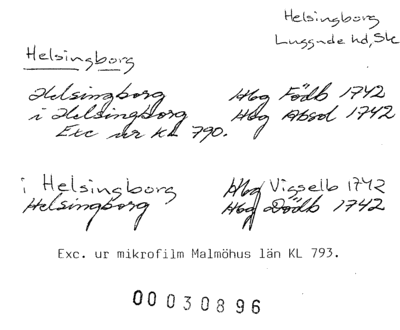 Helsingborg
Luggude hd, Sk
Helsingborg
Helsingborg Hbg Födb 1742
i Helsingborg Hbg Absol 1742
Exc ur KL 790.
i Helsingborg Hbg Vigselb 1742
Helsingborg Hbg Dödb 1742
Exc. ur mikrofilm Malmöhus län KL 793.
00030896